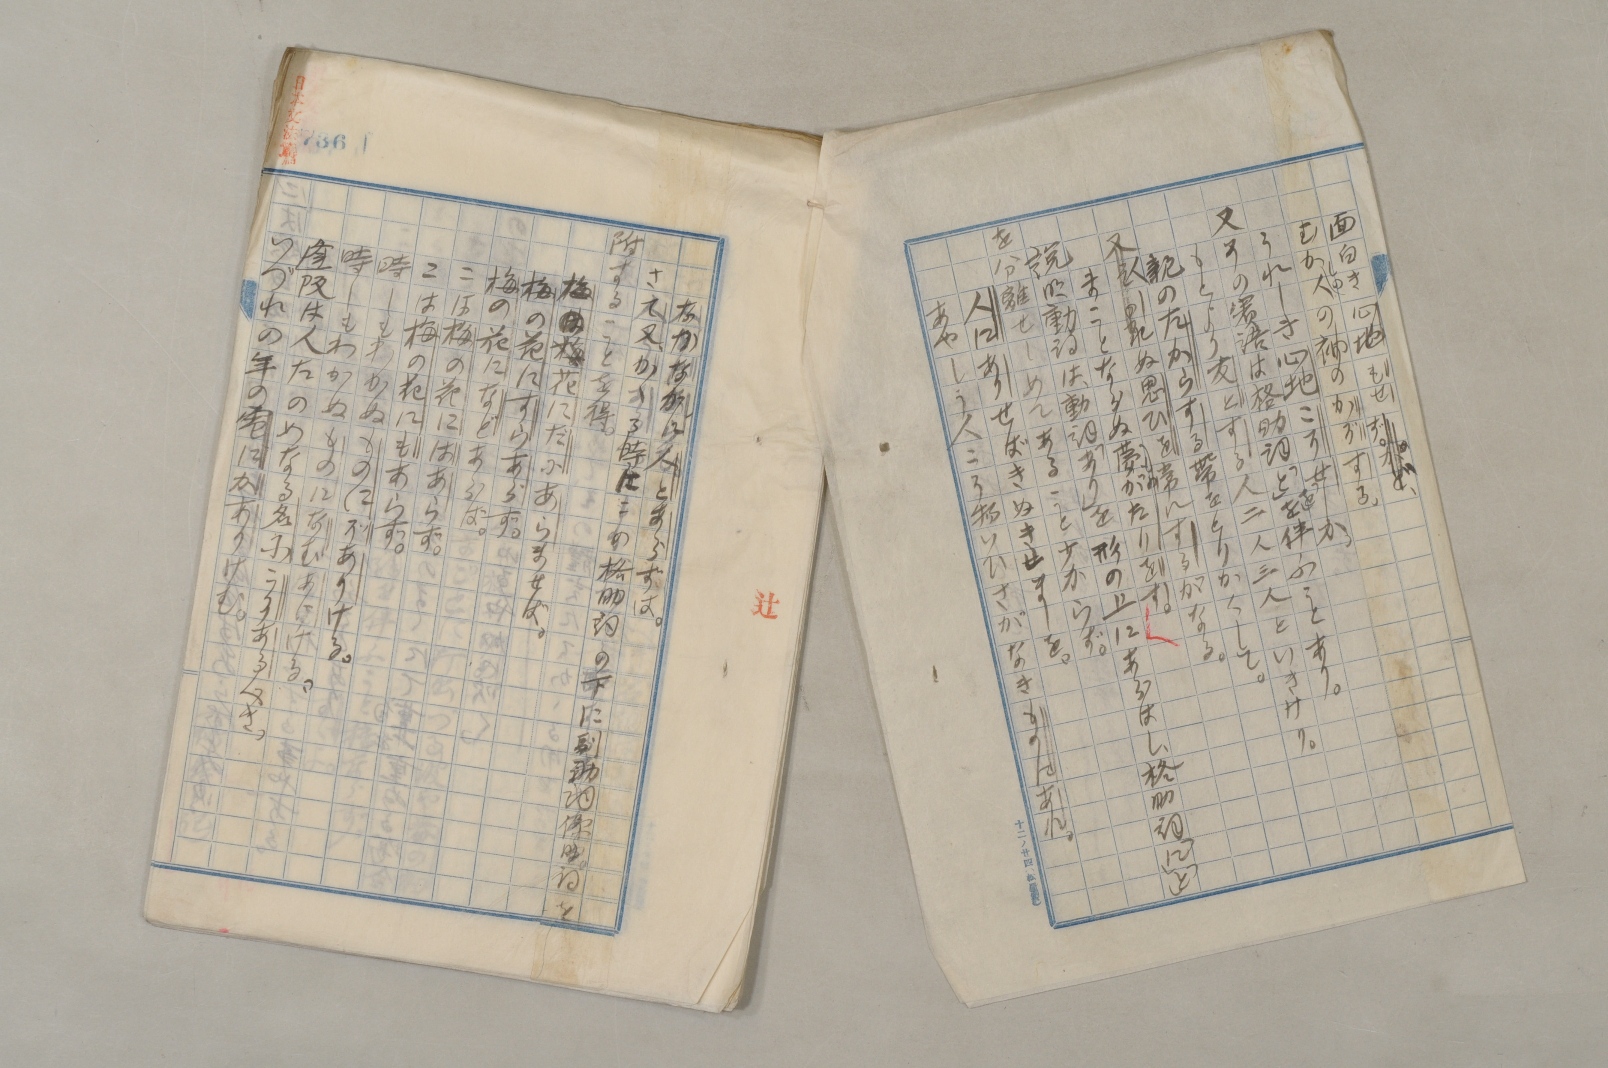 面白き心地もせず。
むか人の袖のかぞする。
うれしき心地こそせしか。
又その宾語は格助詞「と」を伴ふことあり。
もとより友とする人二人三人といきけり。
親のたからする帯をとりかくして。
人しれぬ思ひを常にするがなる。
まことならぬ夢がたりをす。
又
説明動詞は、動詞「あり」を形の上にあらはし、格助詞「に」「と」
を分離せしめてあること少からず。
人にありせばきぬきせましを。
あやしう人こそ物いひさがなきものにあれ。
なかなかに人とあらずは。
さて又かかる時にこの格助詞の下に副助詞係助詞を
附することを得。
梅の花にだにあらませば。
梅の花にすらあらず。
梅の花になどあらば。
こは梅の花にはあらず。
こは梅の花にもあらず。
時しもわかぬものにぞありける。
時しもわかぬものになむありける。
逢阪は人だのめなる名にこそありけれ。
いづれの年の雪にかありけむ。
辻
736